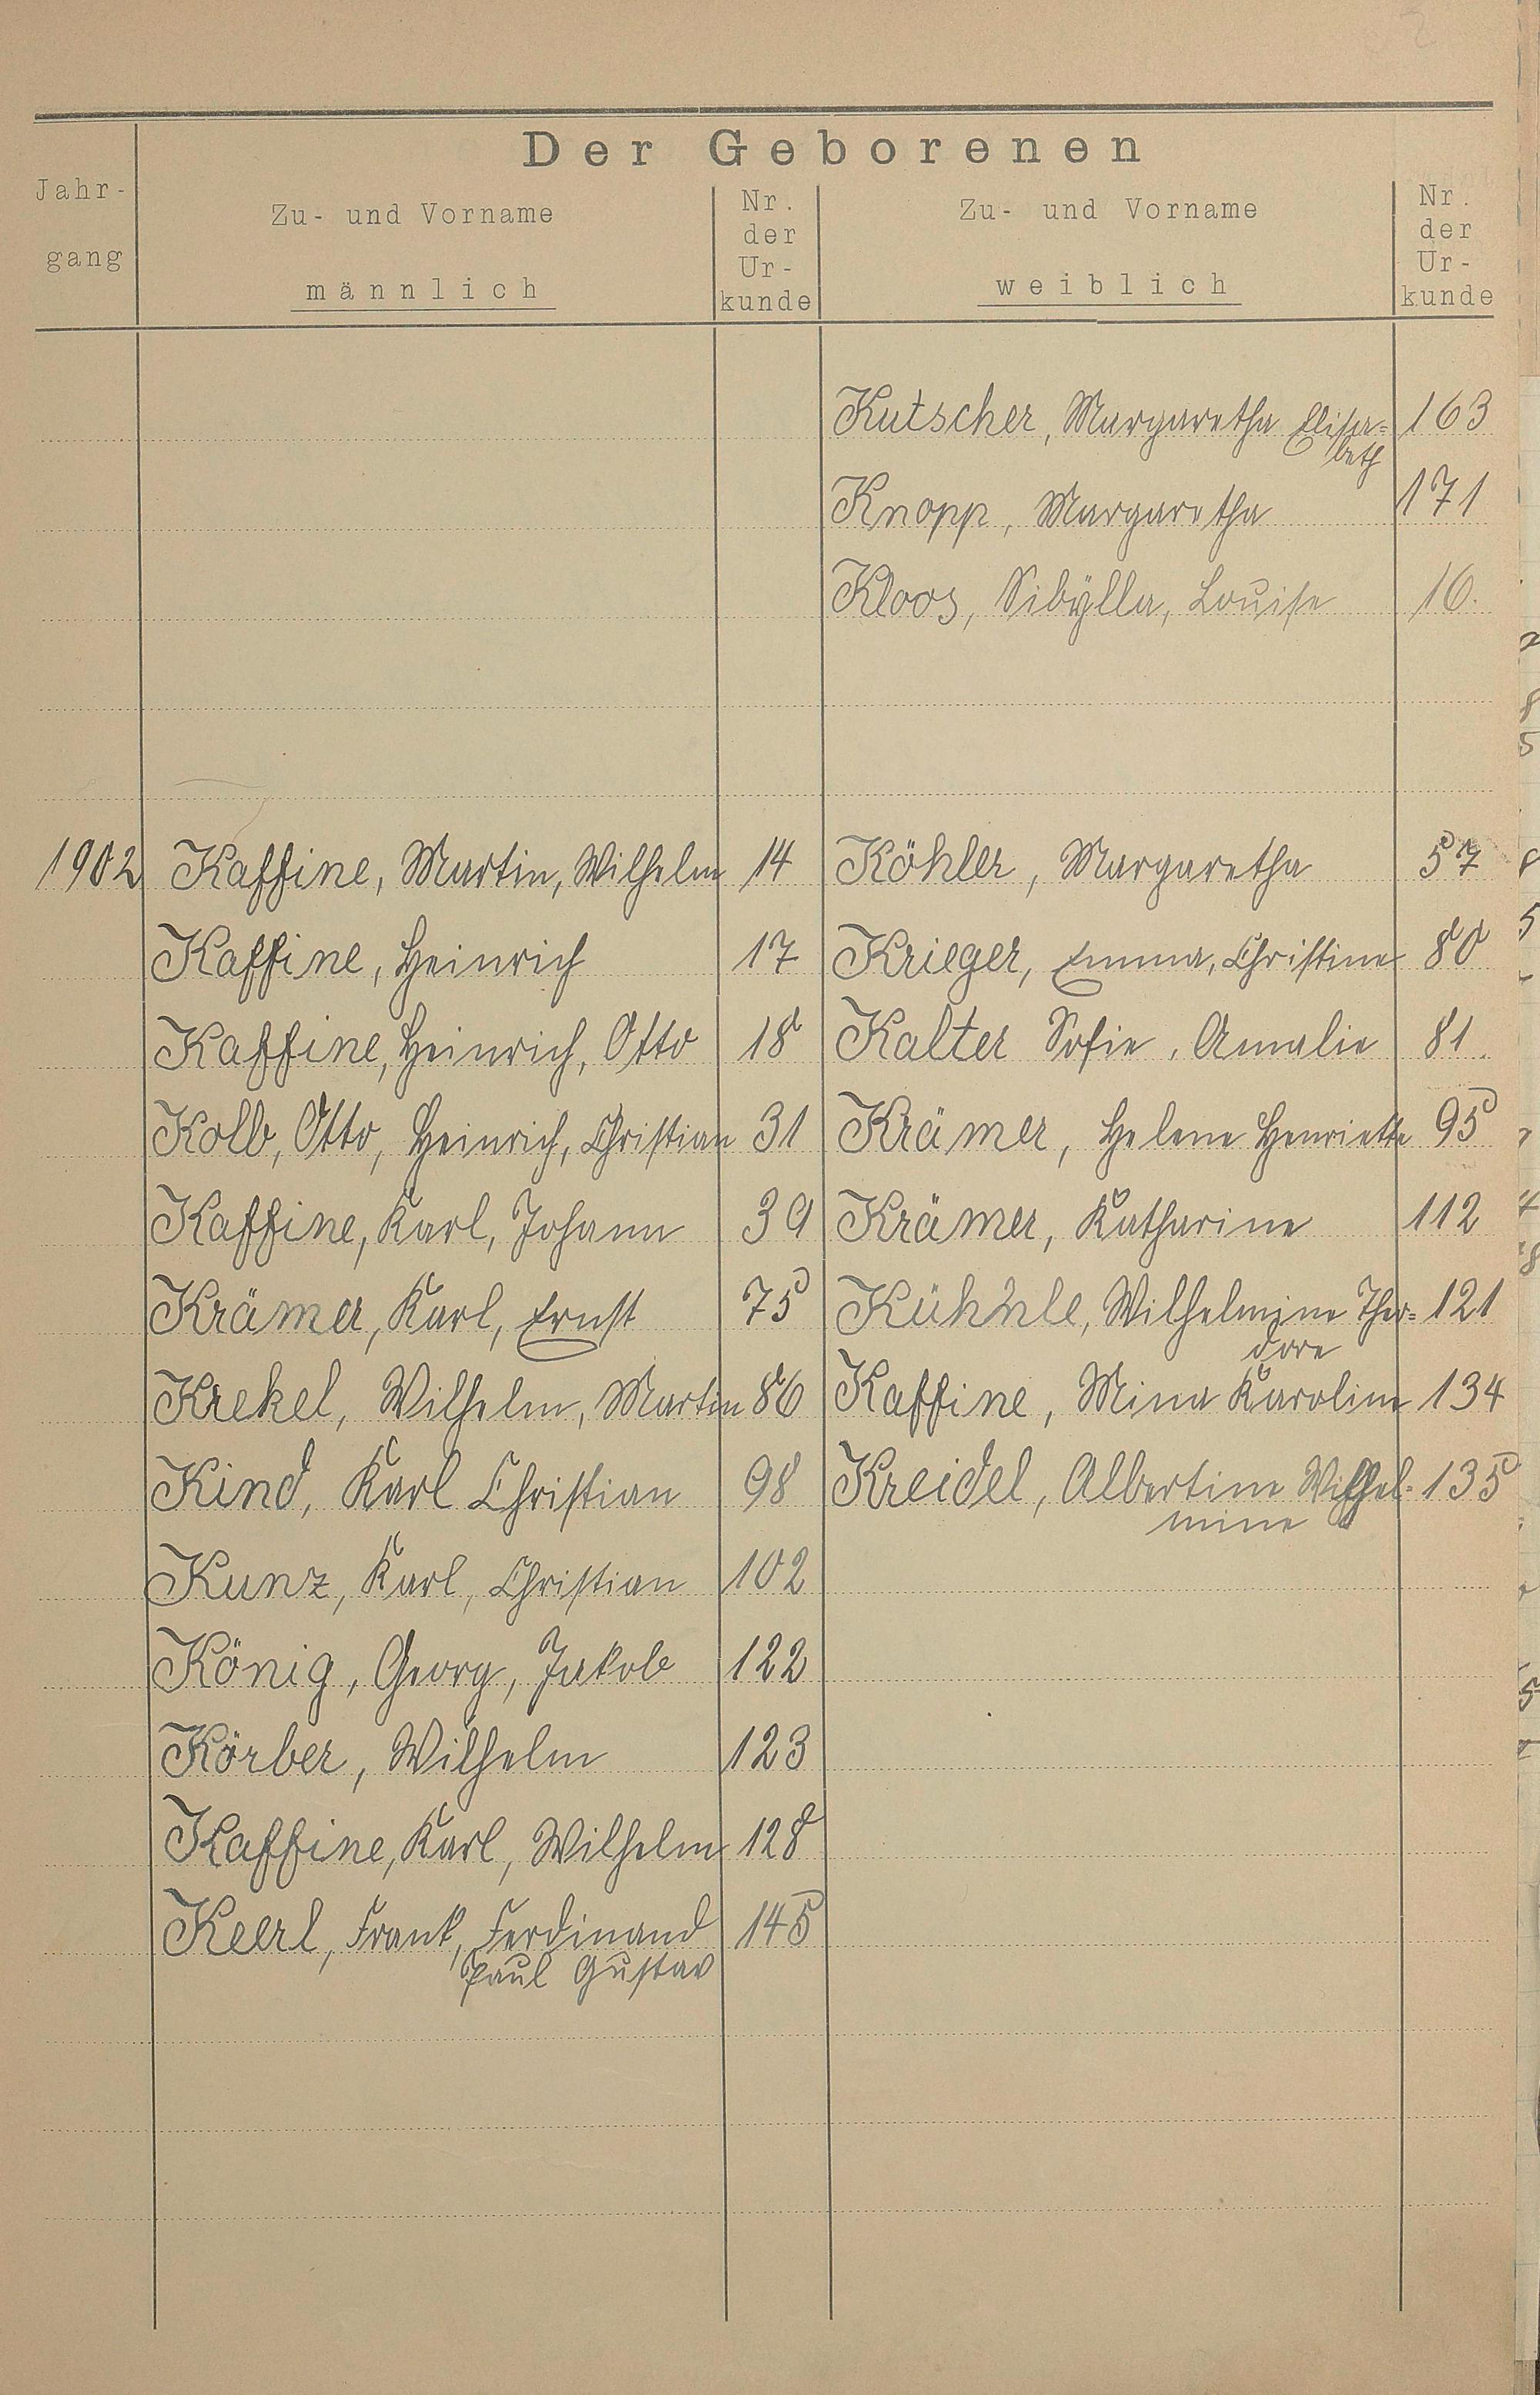 Der Geborenen
Jahr-
gang
Zu- und Vorname
männlich
Nr.
der
Ur-
kunde
Zu- und Vorname
weiblich
Nr.
der
Ur-
kunde
Kutscher, Margaretha Elisa= 163
beth
Knopp, Margaretha 171
Kloos, Sibÿlla, Louise 16.
1902 Kaffine, Martin, Wilhelm 14 Köhler, Margaretha 57
Kaffine, Heinrich 17 Krieger, Emma, Christine 80
Kaffine, Heinrich, Otto 18 Kalter Sofie, Amalie 81.
Kolb, Otto, Heinrich, Christian 31 Krämer, Helene Henriette 95
Kaffine, Karl, Johann 39 Krämer, Katharine 112
Krämer, Karl, Ernst 75 Kühnle, Wilhelmine Theo= 121
dore
Krekel, Wilhelm, Martin 86 Kaffine, Mina Karoline 134
Kind, Karl Christian 98 Kreidel, Albertine Wilhel- 135
mine
Kunz, Karl, Christian 102
König, Georg, Jakob 122
Körber, Wilhelm 123
Kaffine, Karl, Wilhelm 128
Keerl, Frank, Ferdinand 145
Paul Gustav